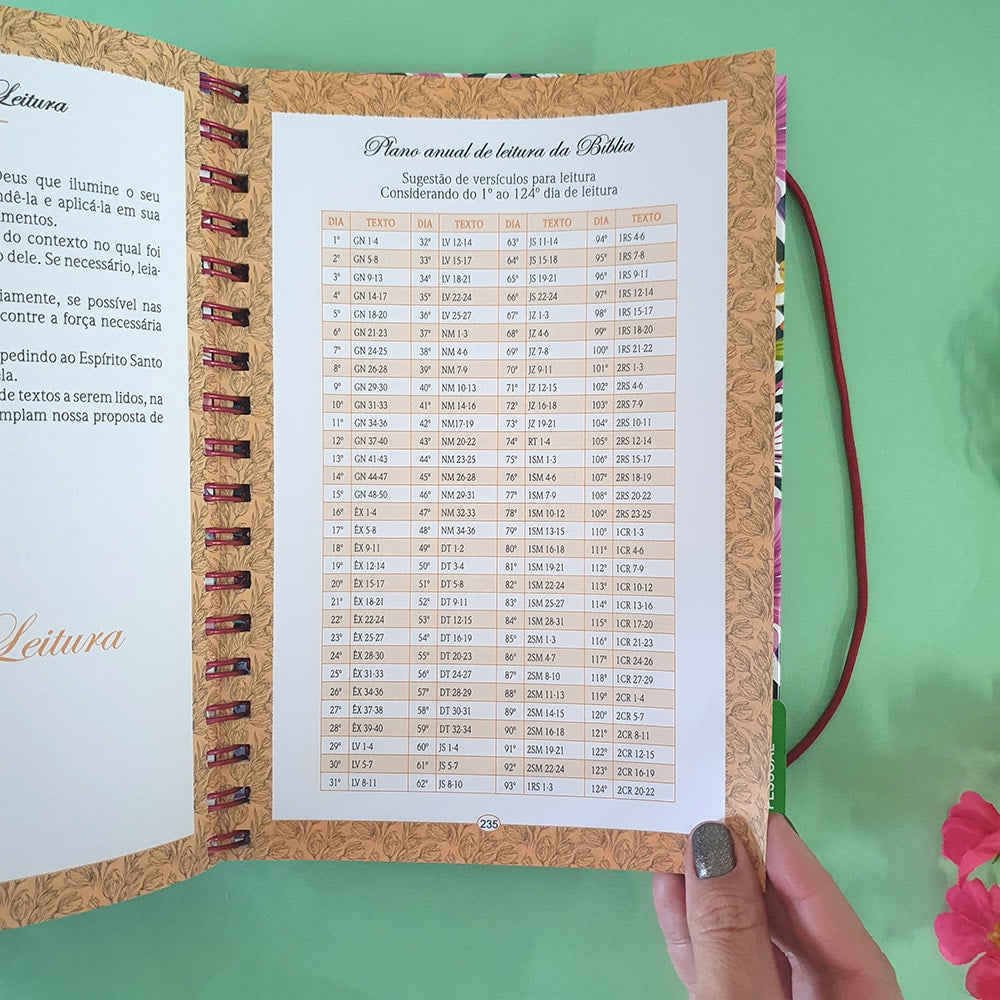 Leitura
Deus que ilumine o seu
endê-la e aplicá-la em sua
mentos.
do contexto no qual foi
dele. Se necessário, leia-
iamente, se possível nas
contre a força necessária
pedindo ao Espírito Santo
ela.
de textos a serem lidos, na
mplam nossa proposta de
Leitura
Plano anual de leitura da Bíblia
Sugestão de versículos para leitura
Considerando do 1º ao 124º dia de leitura
DIA TEXTO DIA TEXTO DIA TEXTO DIA TEXTO
1º GN 1-4 32º LV 12-14 63º JS 11-14 94º 1RS 4-6
2º GN 5-8 33º LV 15-17 64º JS 15-18 95º 1RS 7-8
3º GN 9-13 34º LV 18-21 65º JS 19-21 96º 1RS 9-11
4º GN 14-17 35º LV 22-24 66º JS 22-24 97º 1RS 12-14
5º GN 18-20 36º LV 25-27 67º JZ 1-3 98º 1RS 15-17
6º GN 21-23 37º NM 1-3 68º JZ 4-6 99º 1RS 18-20
7º GN 24-25 38º NM 4-6 69º JZ 7-8 100º 1RS 21-22
8º GN 26-28 39º NM 7-9 70º JZ 9-11 101º 2RS 1-3
9º GN 29-30 40º NM 10-13 71º JZ 12-15 102º 2RS 4-6
10º GN 31-33 41º NM 14-16 72º JZ 16-18 103º 2RS 7-9
11º GN 34-36 42º NM17-19 73º JZ 19-21 104º 2RS 10-11
12º GN 37-40 43º NM 20-22 74º RT 1-4 105º 2RS 12-14
13º GN 41-43 44º NM 23-25 75º 1SM 1-3 106º 2RS 15-17
14º GN 44-47 45º NM 26-28 76º 1SM 4-6 107º 2RS 18-19
15º GN 48-50 46º NM 29-31 77º 1SM 7-9 108º 2RS 20-22
16º ÊX 1-4 47º NM 32-33 78º 1SM 10-12 109º 2RS 23-25
17º ÊX 5-8 48º NM 34-36 79º 1SM 13-15 110º 1CR 1-3
18º ÊX 9-11 49º DT 1-2 80º 1SM 16-18 111º 1CR 4-6
19º ÊX 12-14 50º DT 3-4 81º 1SM 19-21 112º 1CR 7-9
20º ÊX 15-17 51º DT 5-8 82º 1SM 22-24 113º 1CR 10-12
21º ÊX 18-21 52º DT 9-11 83º 1SM 25-27 114º 1CR 13-16
22º ÊX 22-24 53º DT 12-15 84º 1SM 28-31 115º 1CR 17-20
23º ÊX 25-27 54º DT 16-19 85º 2SM 1-3 116º 1CR 21-23
24º ÊX 28-30 55º DT 20-23 86º 2SM 4-7 117º 1CR 24-26
25º ÊX 31-33 56º DT 24-27 87º 2SM 8-10 118º 1CR 27-29
26º ÊX 34-36 57º DT 28-29 88º 2SM 11-13 119º 2CR 1-4
27º ÊX 37-38 58º DT 30-31 89º 2SM 14-15 120º 2CR 5-7
28º ÊX 39-40 59º DT 32-34 90º 2SM 16-18 121º 2CR 8-11
29º LV 1-4 60º JS 1-4 91º 2SM 19-21 122º 2CR 12-15
30º LV 5-7 61º JS 5-7 92º 2SM 22-24 123º 2CR 16-19
31º LV 8-11 62º JS 8-10 93º 1RS 1-3 124º 2CR 20-22
235